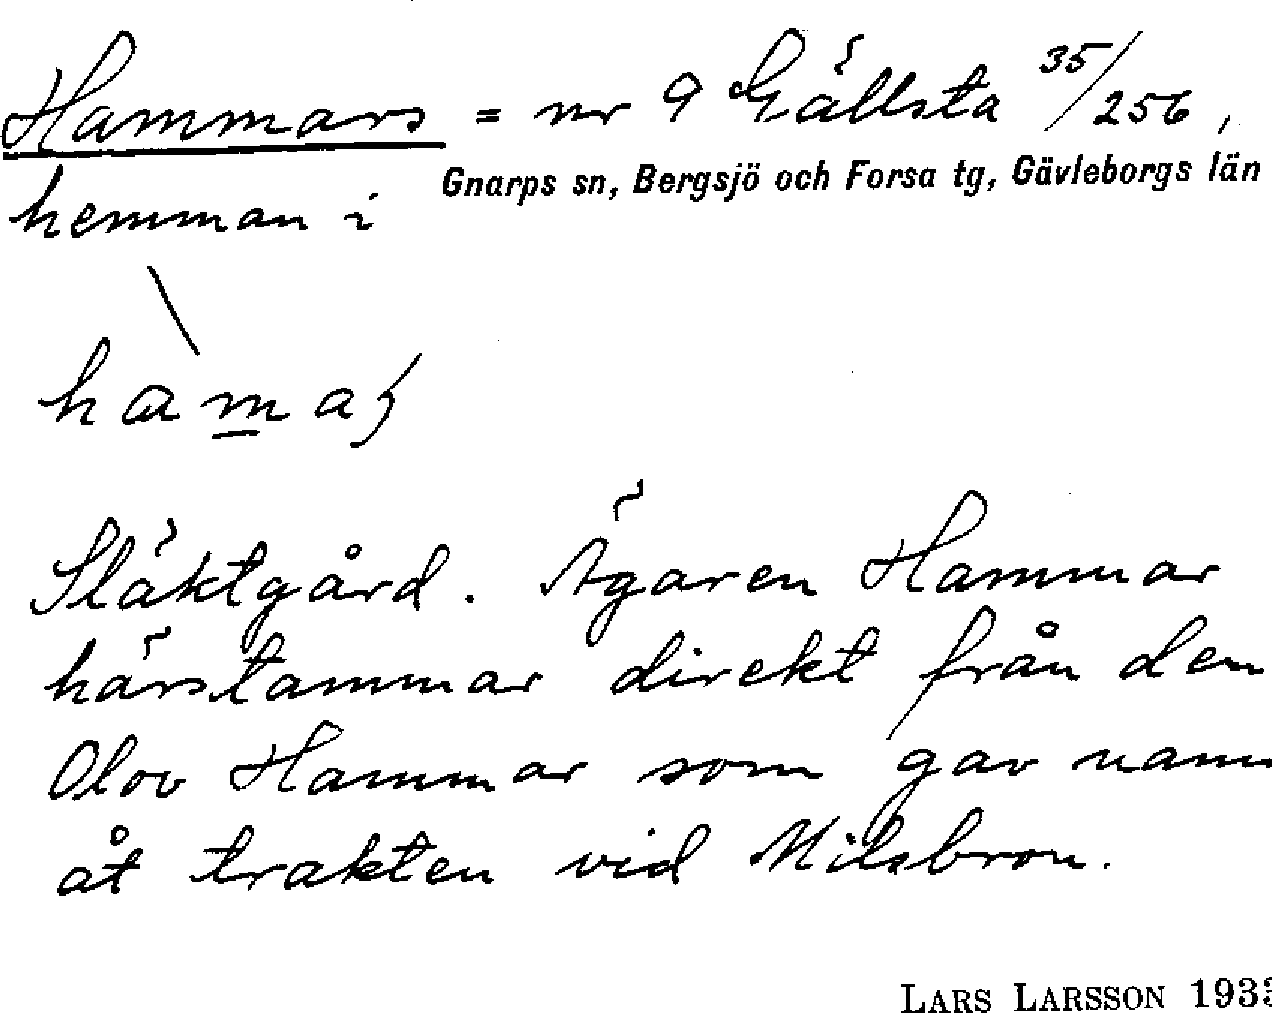 Hammars = nr 9 Gällsta 35/256,
Gnarps sn, Bergsjö och Forsa tg, Gävleborgs län
hemman i
Släktgård. Ägaren Hammar
härstammar direkt från den
Olov Hammar som gav namn
åt trakten vid Milsbron.
LARS LARSSON 1933